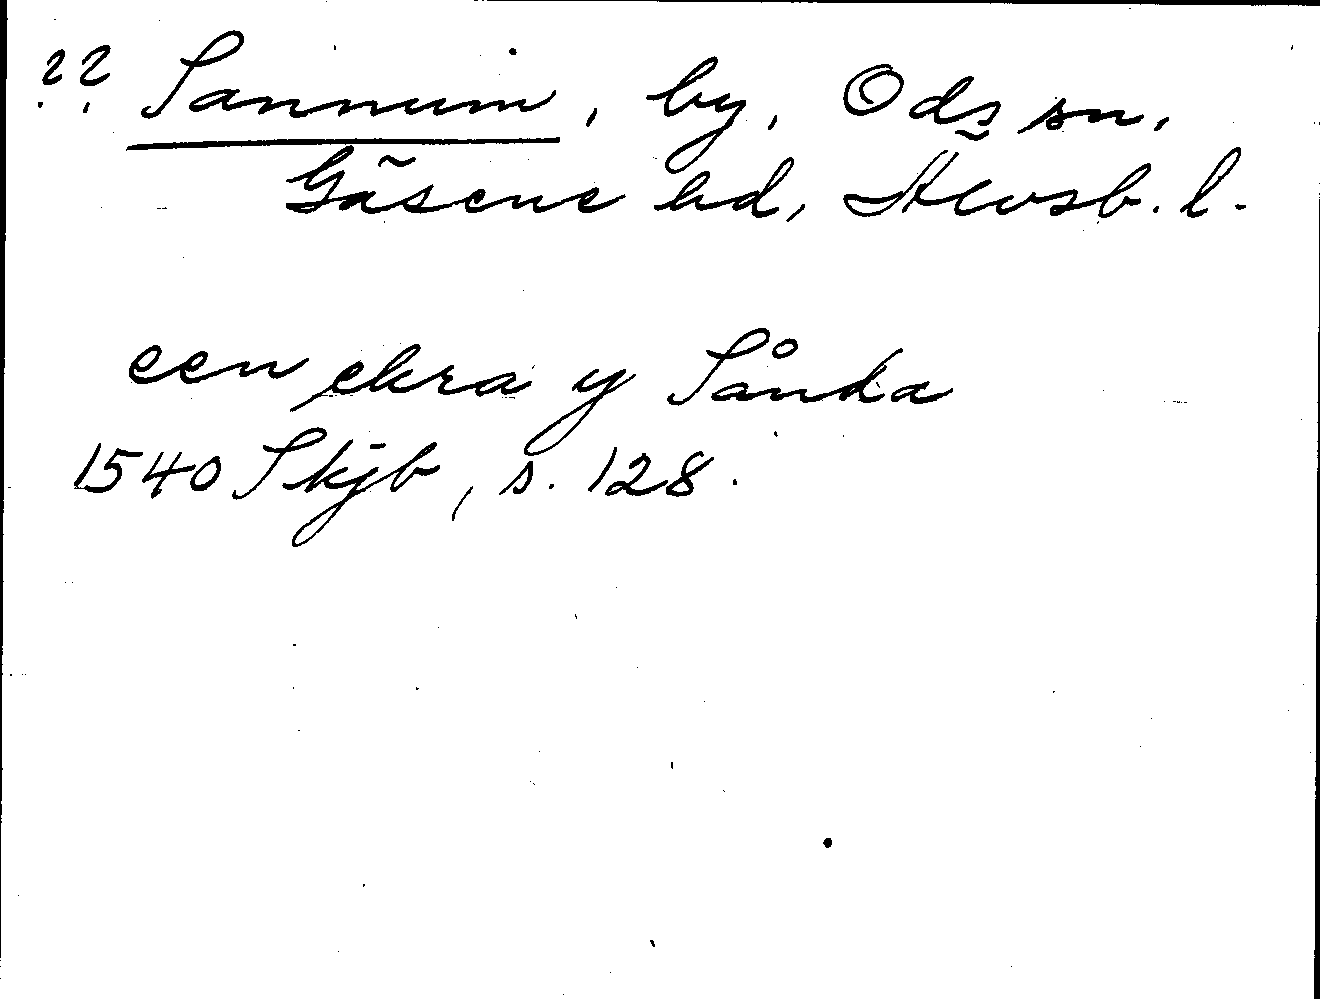 ?? Sannum, by, Ods sn,
Gäsene hd, Älvsb. l.
een ekra y Sånda
1540 Skjb, s. 128.